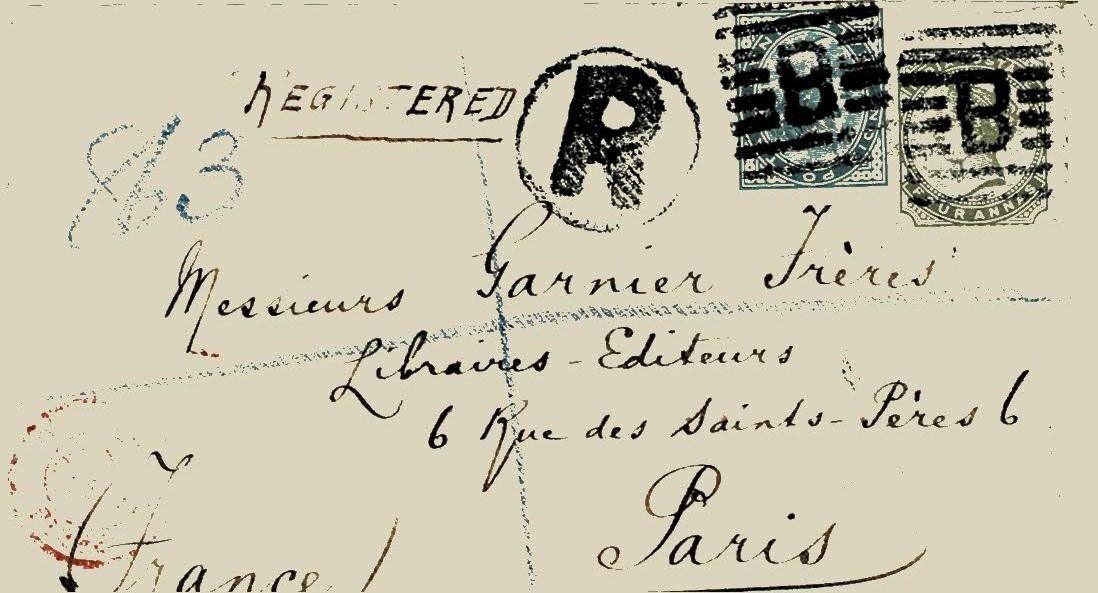 REGISTERED
R
B
B
FOUR ANNAS
63
Messieurs Garnier Frères
Libraires-Editeurs
6 Rue des Saints-Pères 6
Paris
(France)